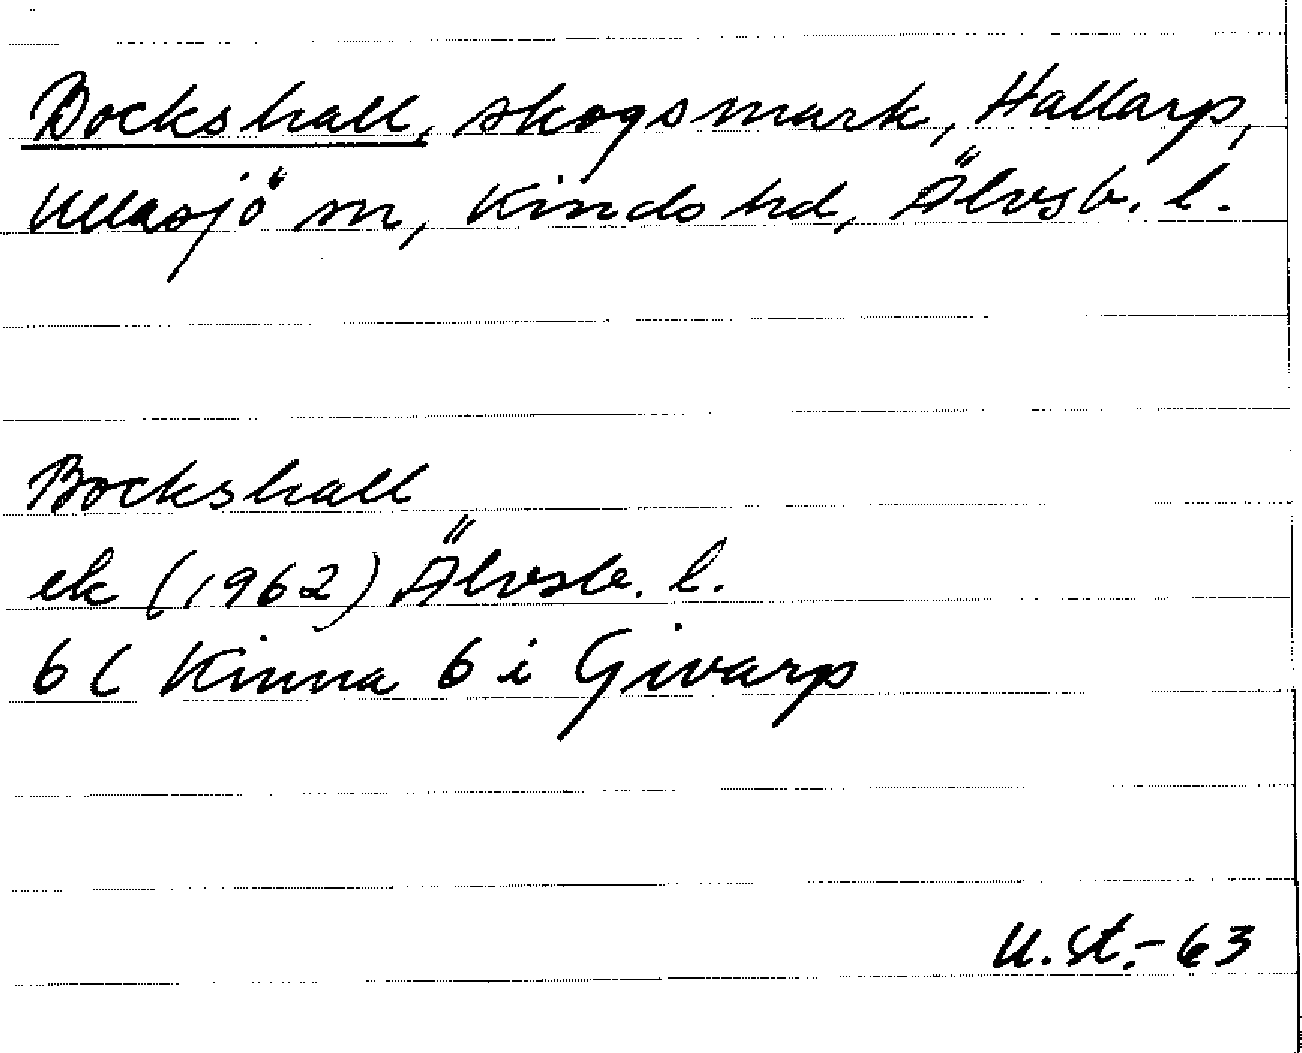 Bockshall, skogsmark, Hallarp,
Ullasjö sn, Kinds hd, Älvsb. l.
Bockshall
ek (1962) Älvsb. l.
6 C Kinna 6 i Givarp
U. St. - 63